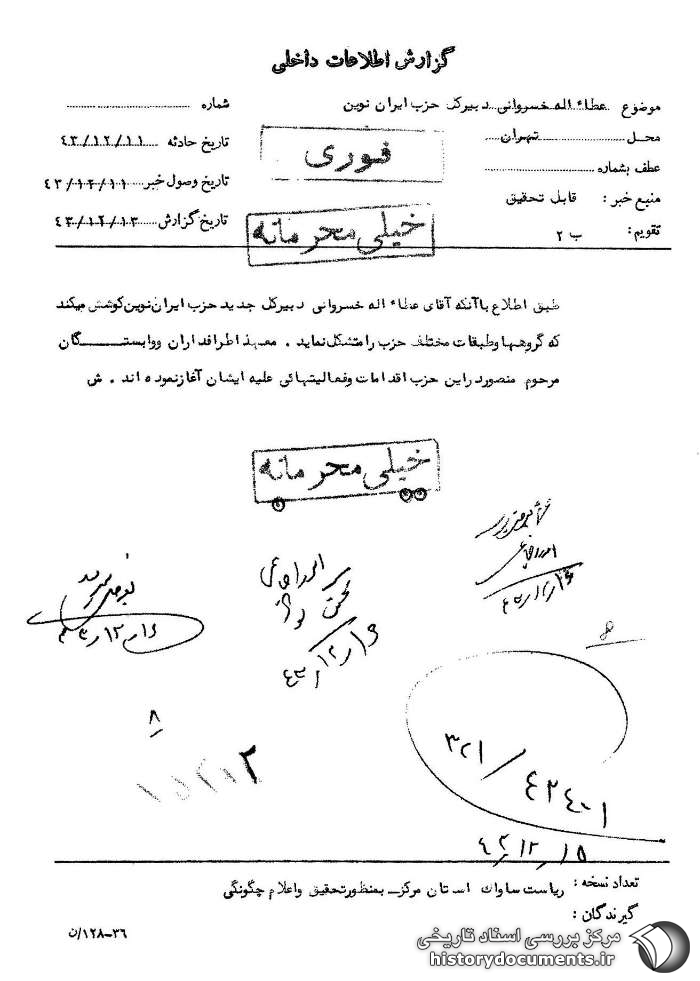 گزارش اطلاعات داخلی
موضوع عطاء اله خسروانی دبیرکل حزب ایران نوین
شماره
محل تهران
تاریخ حادثه ۴۳/۱۲/۱۱
عطف بشماره
تاریخ وصول خبر ۴۳/۱۲/۱۱
منبع خبر : قابل تحقیق
تاریخ گزارش ۴۳/۱۲/۱۳
تقویم : ب ۲
فوری
خیلی محرمانه
طبق اطلاع باآنکه آقای عطاء اله خسروانی دبیرکل جدید حزب ایران نوین کوشش میکند
که گروهها وطبقات مختلف حزب رامتشکل نماید . معهذا طرافداران ووابستگان
مرحوم منصوردراین حزب اقدامات وفعالیتهائی علیه ایشان آغازنموده اند . ش
خیلی محرمانه
۴۳/۱۲/۱۶
۴۳/۱۲/۱۶
۴۳/۱۲/۱۶
۸
۳۲۱/
۴۳/۱۲/۱۸
تعداد نسخه : ریاست ساواک استان مرکز_ بمنظورتحقیق واعلام چگونگی
گیرندگان :
۳۶-۱۲۸/ن
مرکز بررسی اسناد تاریخی
historydocuments.ir